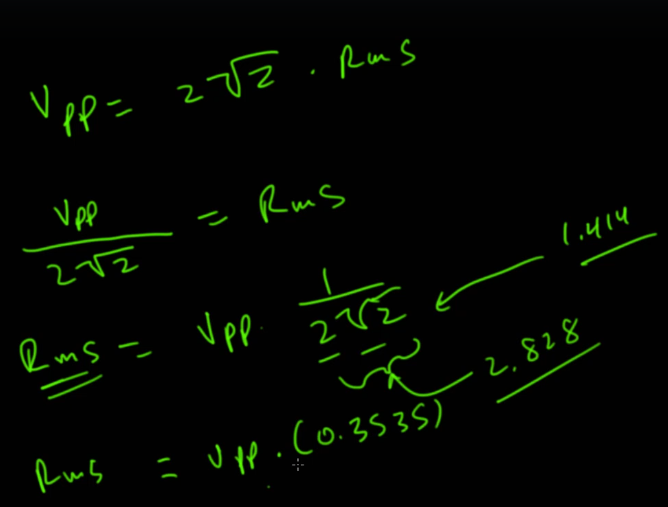 Vpp = 2√2 . Rms
Vpp / 2√2 = Rms
1.414
Rms = Vpp . 1 / 2√2
2.828
Rms = Vpp . (0.3535)